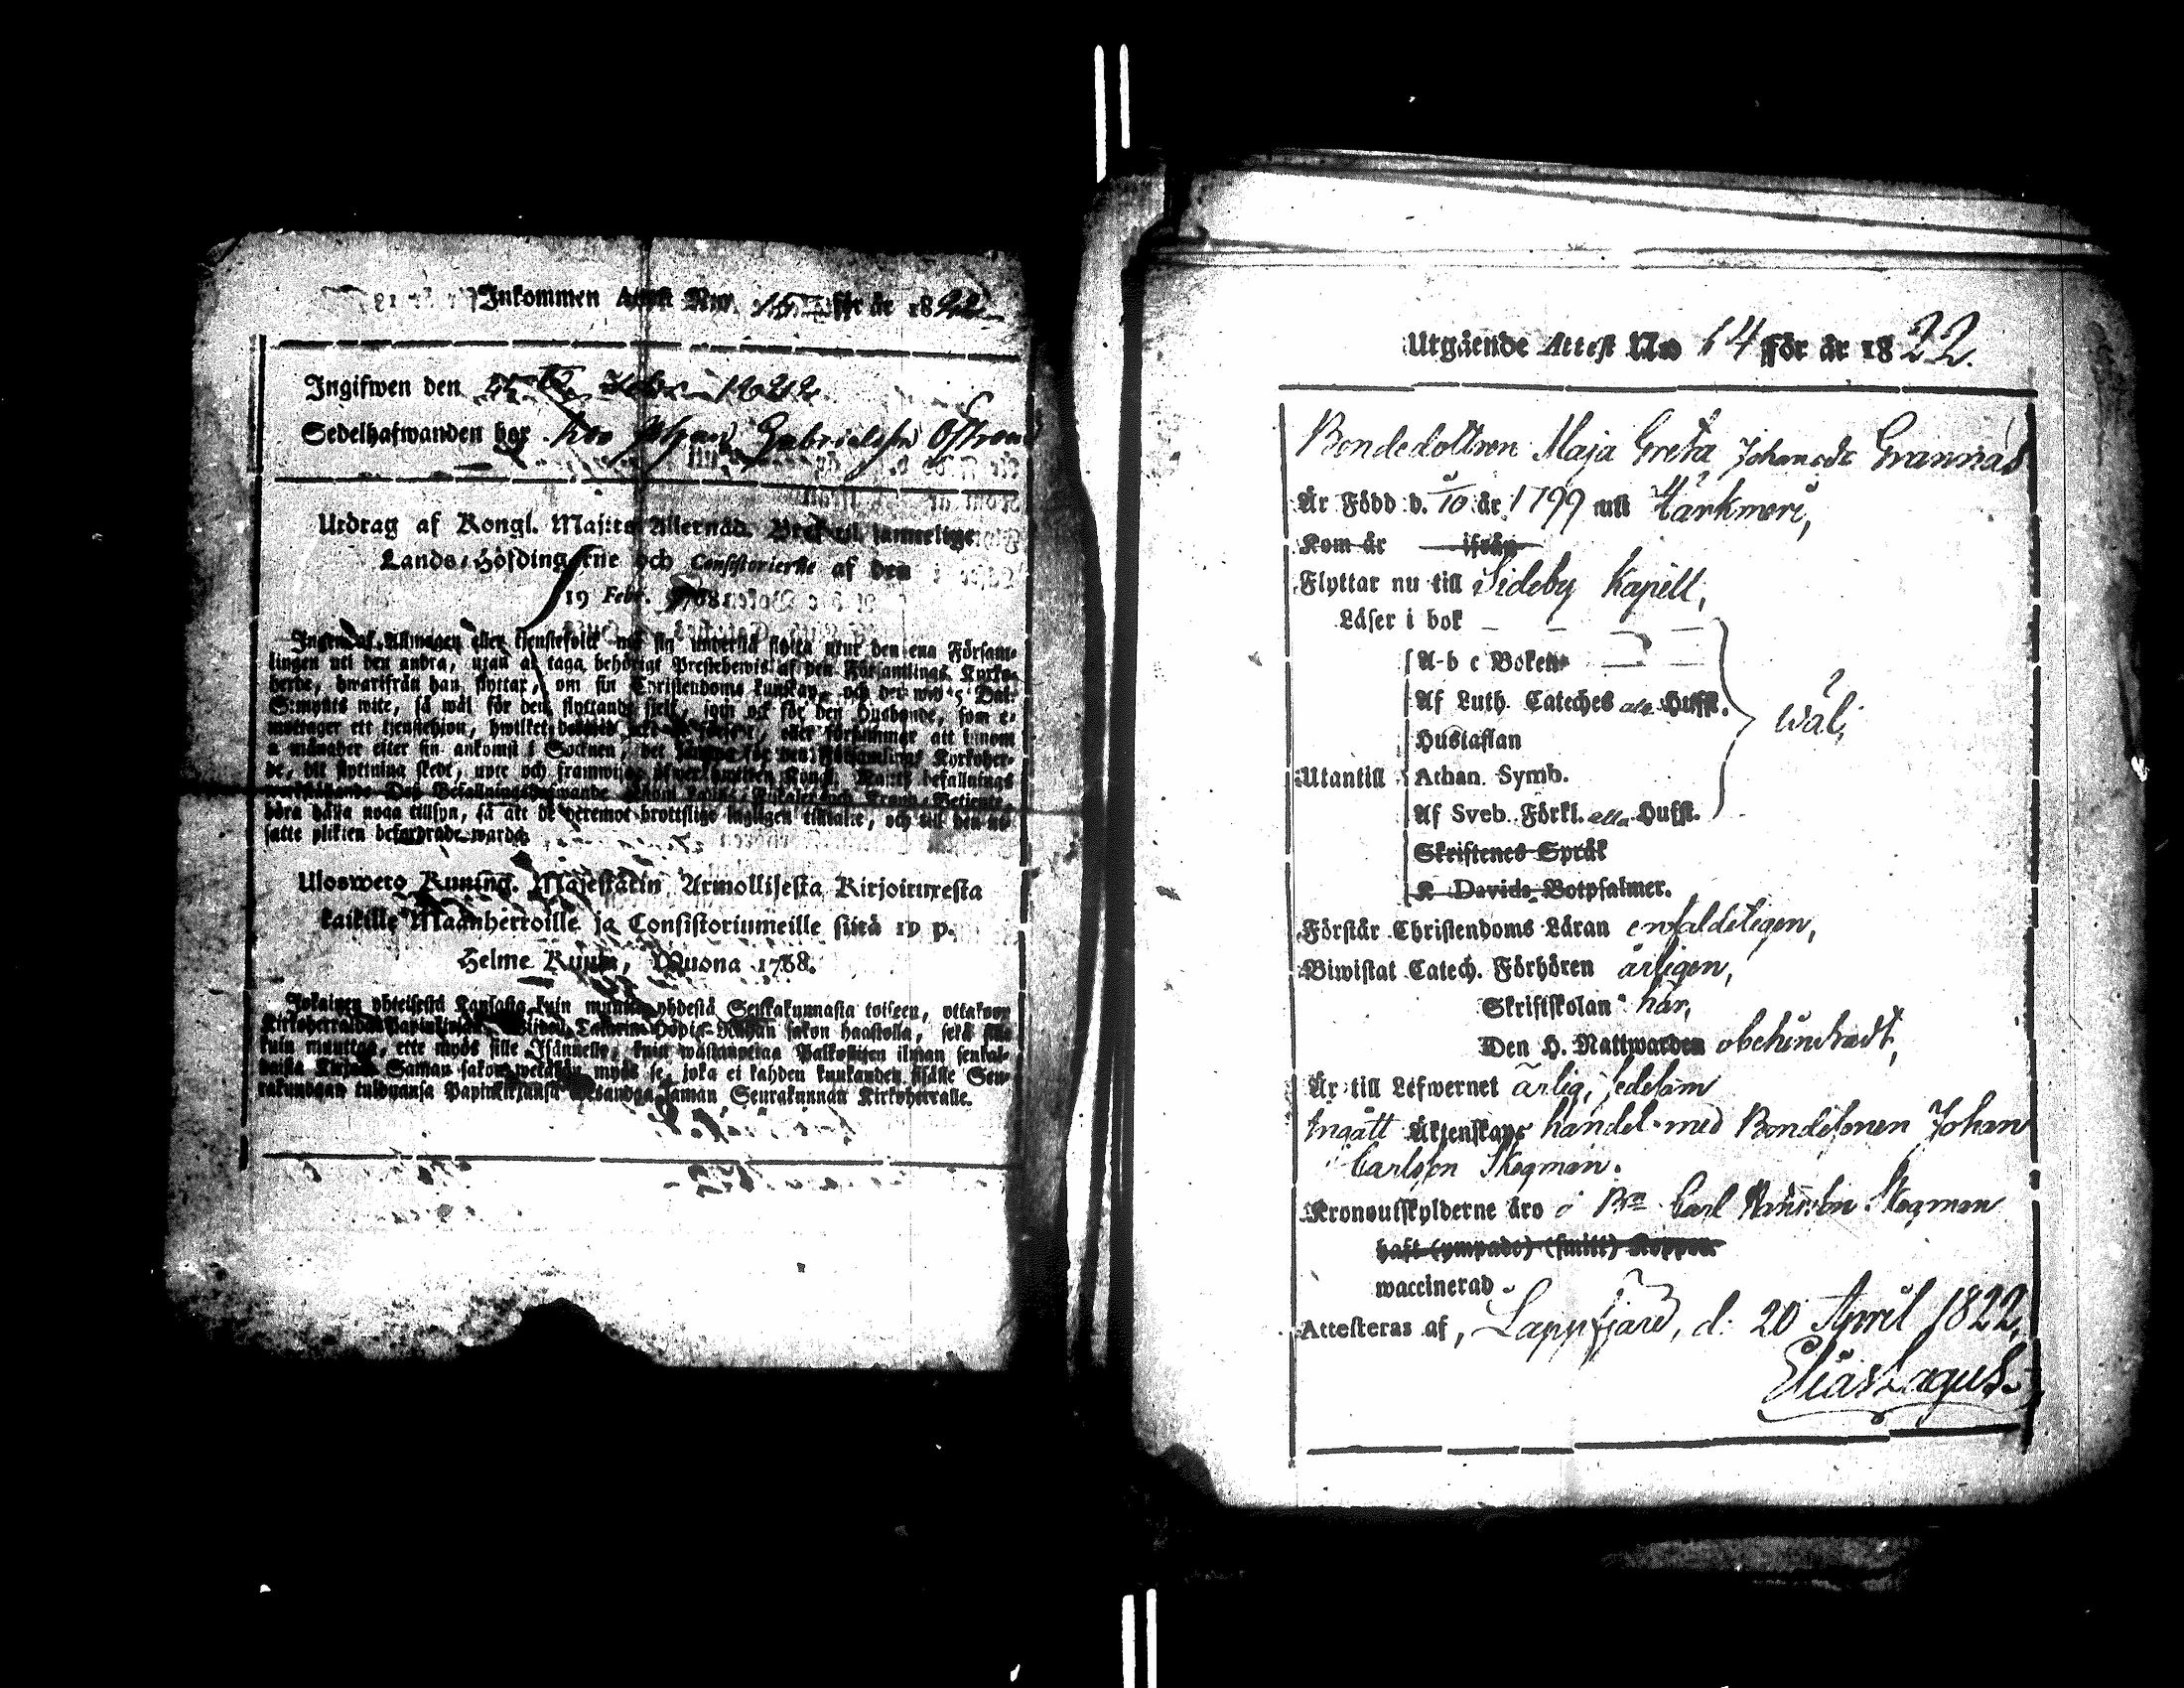 Inkommen Attest Nro. 15 för år 1822
Ingifwen den Febr. 1822
Sedelhafwanden hor hos Johan Gabrielsson Öststrand
Utdrag af Kongl. Maj:ts Allernåd. Bref til samtelige
Lands-Höfdingarne och Consistorierne af den
19 Febr. 1768
Ingen af Allmogen eller tjenstefolck må sig understå flytta utur den ena Försam-
lingen uti den andra, utan at taga behörigt Prestebewis af den Församlings Kyrko-
herde, hwarifrån han flyttar, om sin Christendoms kunskap, och det wid 5 Dal.
S:mynts wite, så wäl för den flyttande sjelf, som ock för den Husbonde, som e-
mottager ett tjenstehjon, hwilket eller försummar att innom
2 månader efter sin ankomst i Socknen, det Församlings Kyrkoher-
de, dit flyttning skedt, upte och framwisa Kongl. Maj:ts befallnings
böra hålla noga tillsyn, så att de deremot brottslige lagligen tiltalte, och till den ut-
satte plikten befordrade warda.
Uloswero Kuning. Majestätin Armollisesta Kirjoituxesta
kaikille Maanherroille ja Consistoriumeille siitä 19 p.
Helme Kuusa, Wuona 1768.
Jokainen yhteisestä Kansasta kuin muutta yhdestä Seurakunnasta toiseen, ottakoon
Kirkoherraldan Papinkirjan, Wijden Talarin Hopia-Rahan sakon haastolla, sekä sille
kuin muuttaa, että myös sille Isännelle, kuin wastanottaa Palkollisen ilman senkal-
daista Kirjaa. Saman sakon wetäkön myös se, joka ei kahden kuukauden sisälle Seu-
rakundaan tuldoansa Papinkirjansa saman Seurakunnan Kirkoherralle.
Utgående Attest Nro 14 för år 1822.
Bondedottren Maja Greta Johansdr Grannäs
Är Född d. 5/10 år 1799 uti Härkmeri,
Kom år ifrån
Flyttar nu till Sideby Kapell,
Läser i bok
A-b c Boken
Af Luth. Cateches alla Hufst.
Hustaflan
wäl,
Utantill Athan. Symb.
Af Sveb. Förkl. alla Hufst.
Skriftenes Språk
K Davids Botpsalmer.
Förstår Christendoms Läran enfaldeligen,
Biwistat Catech. Förhören årligen,
Skriftskolan här,
Den H. Nattwarden obehindradt,
Är till Lefwernet ärlig, sedesam
Ingått Äktenskaps handel med Bondesonen Johan
Carlsson Skogman.
Kronoutskylderne äro i Bn Carl Skogman
haft (ympade) (smitt) Koppor
waccinerad
Attesteras af, Lappfjärd, d. 20 April 1822,
Elias Lagus.